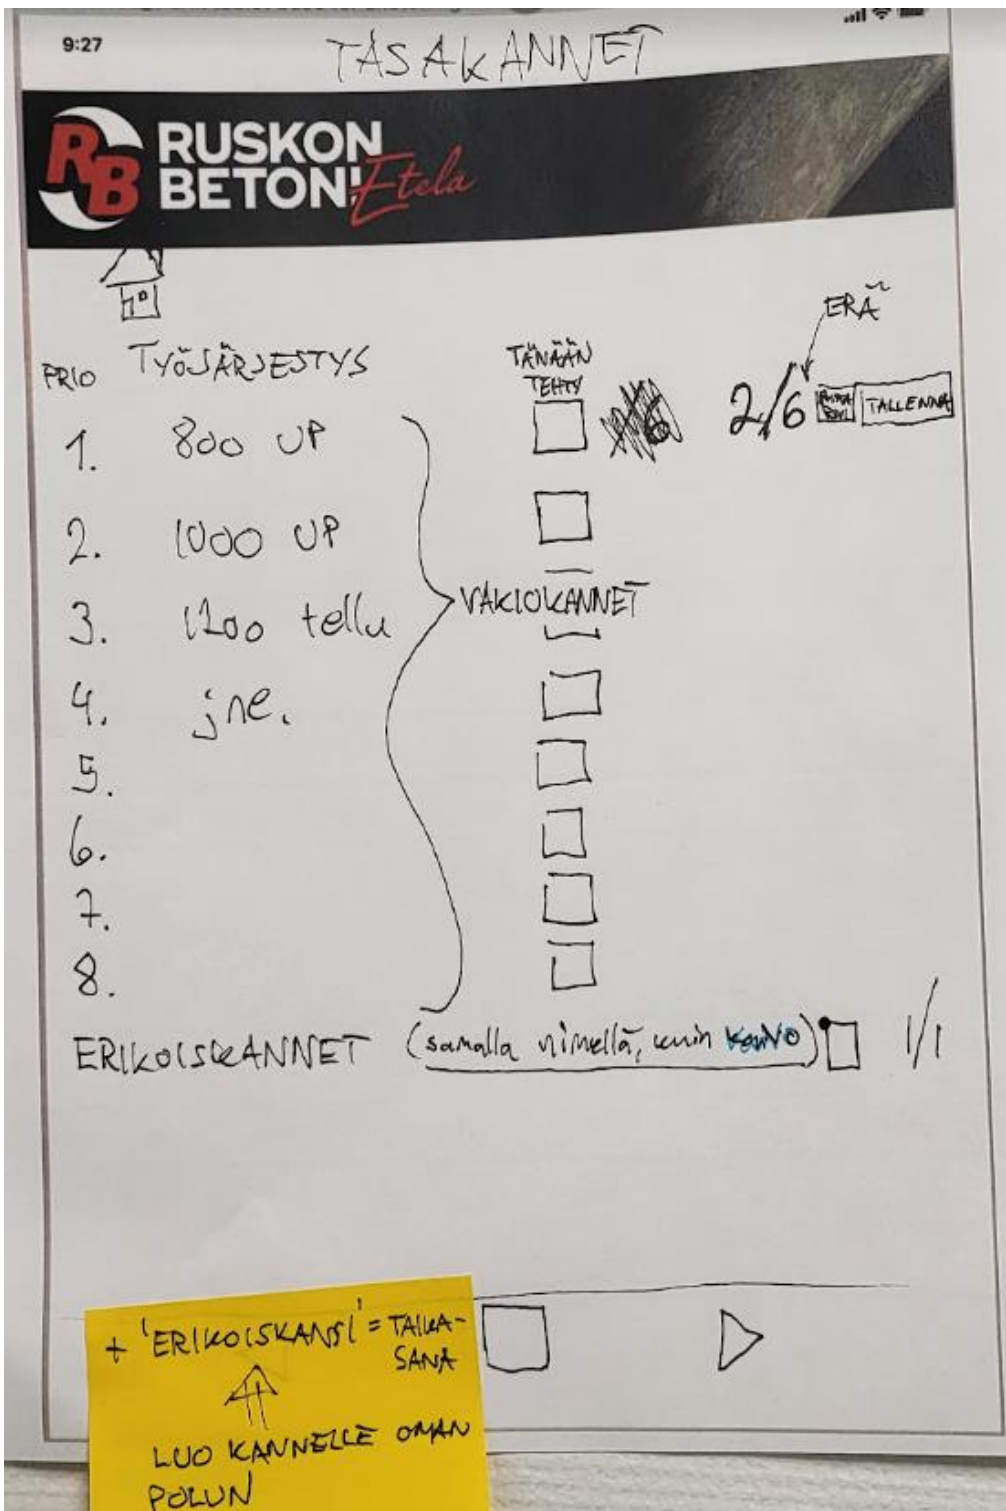 9:27
TASAKANNET
RB RUSKON
BETONI Etelä
ERÄ
PRIO TYÖJÄRJESTYS TÄNÄÄN
TEHTY
1. 800 UP 2/6 TALLENNA
2. 1000 UP
3. 1200 tellu VAKIOKANNET
4. jne.
5.
6.
7.
8.
ERIKOISKANNET (samalla nimellä, kuin kaivo) 1/1
+ 'ERIKOISKANSI' = TAIKA-
SANA
LUO KANNELLE OMAN
POLUN